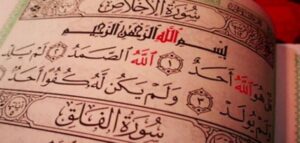 سُورَةُ الإِخْلَاصِ
بِسْمِ اللهِ الرَّحْمٰنِ الرَّحِيمِ
هُوَ اللهُ أَحَدٌ ١ اللهُ الصَّمَدُ ٢ لَمْ يَلِدْ
وَلَمْ يُولَدْ ٣ وَلَمْ يَكُنْ لَهُ كُفُوًا أَحَدٌ
سُورَةُ الْفَلَقِ